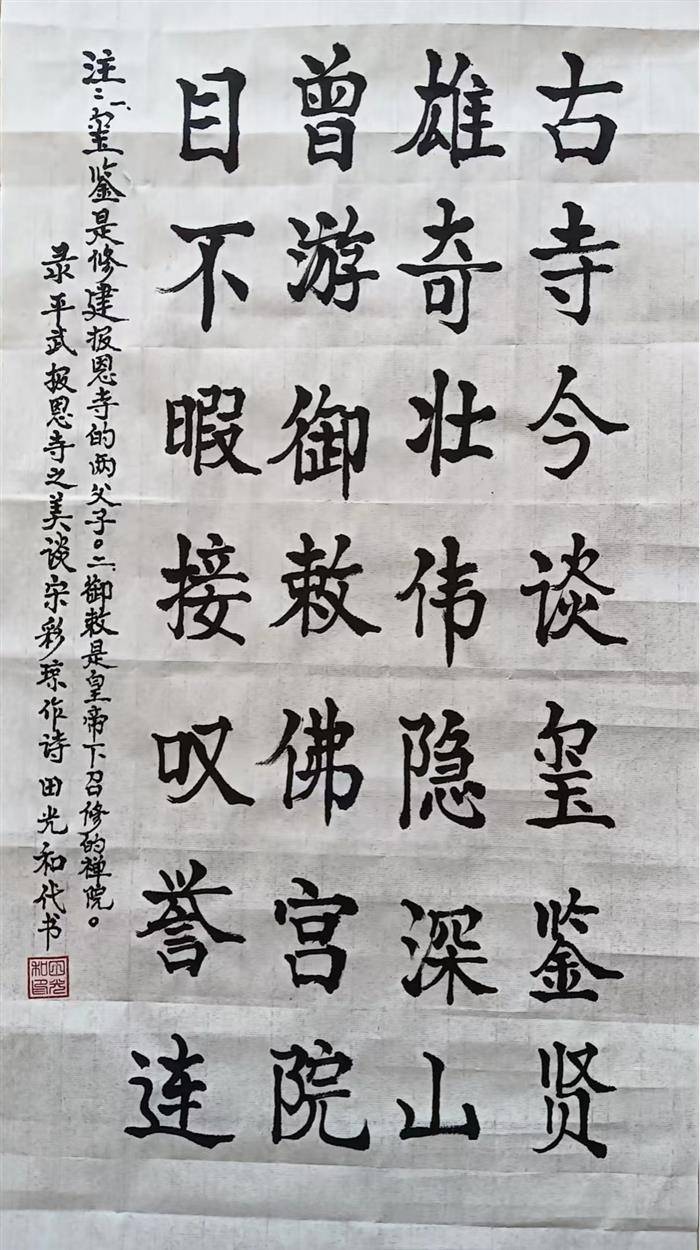 古寺今谈玺鉴贤
雄奇壮伟隐深山
曾游御敕佛宫院
目不暇接叹誉连
注：一、玺鉴是修建报恩寺的两父子。二、御敕是皇帝下召修的禅院。
录平武报恩寺之美谈宋彩琼作诗田光和代书